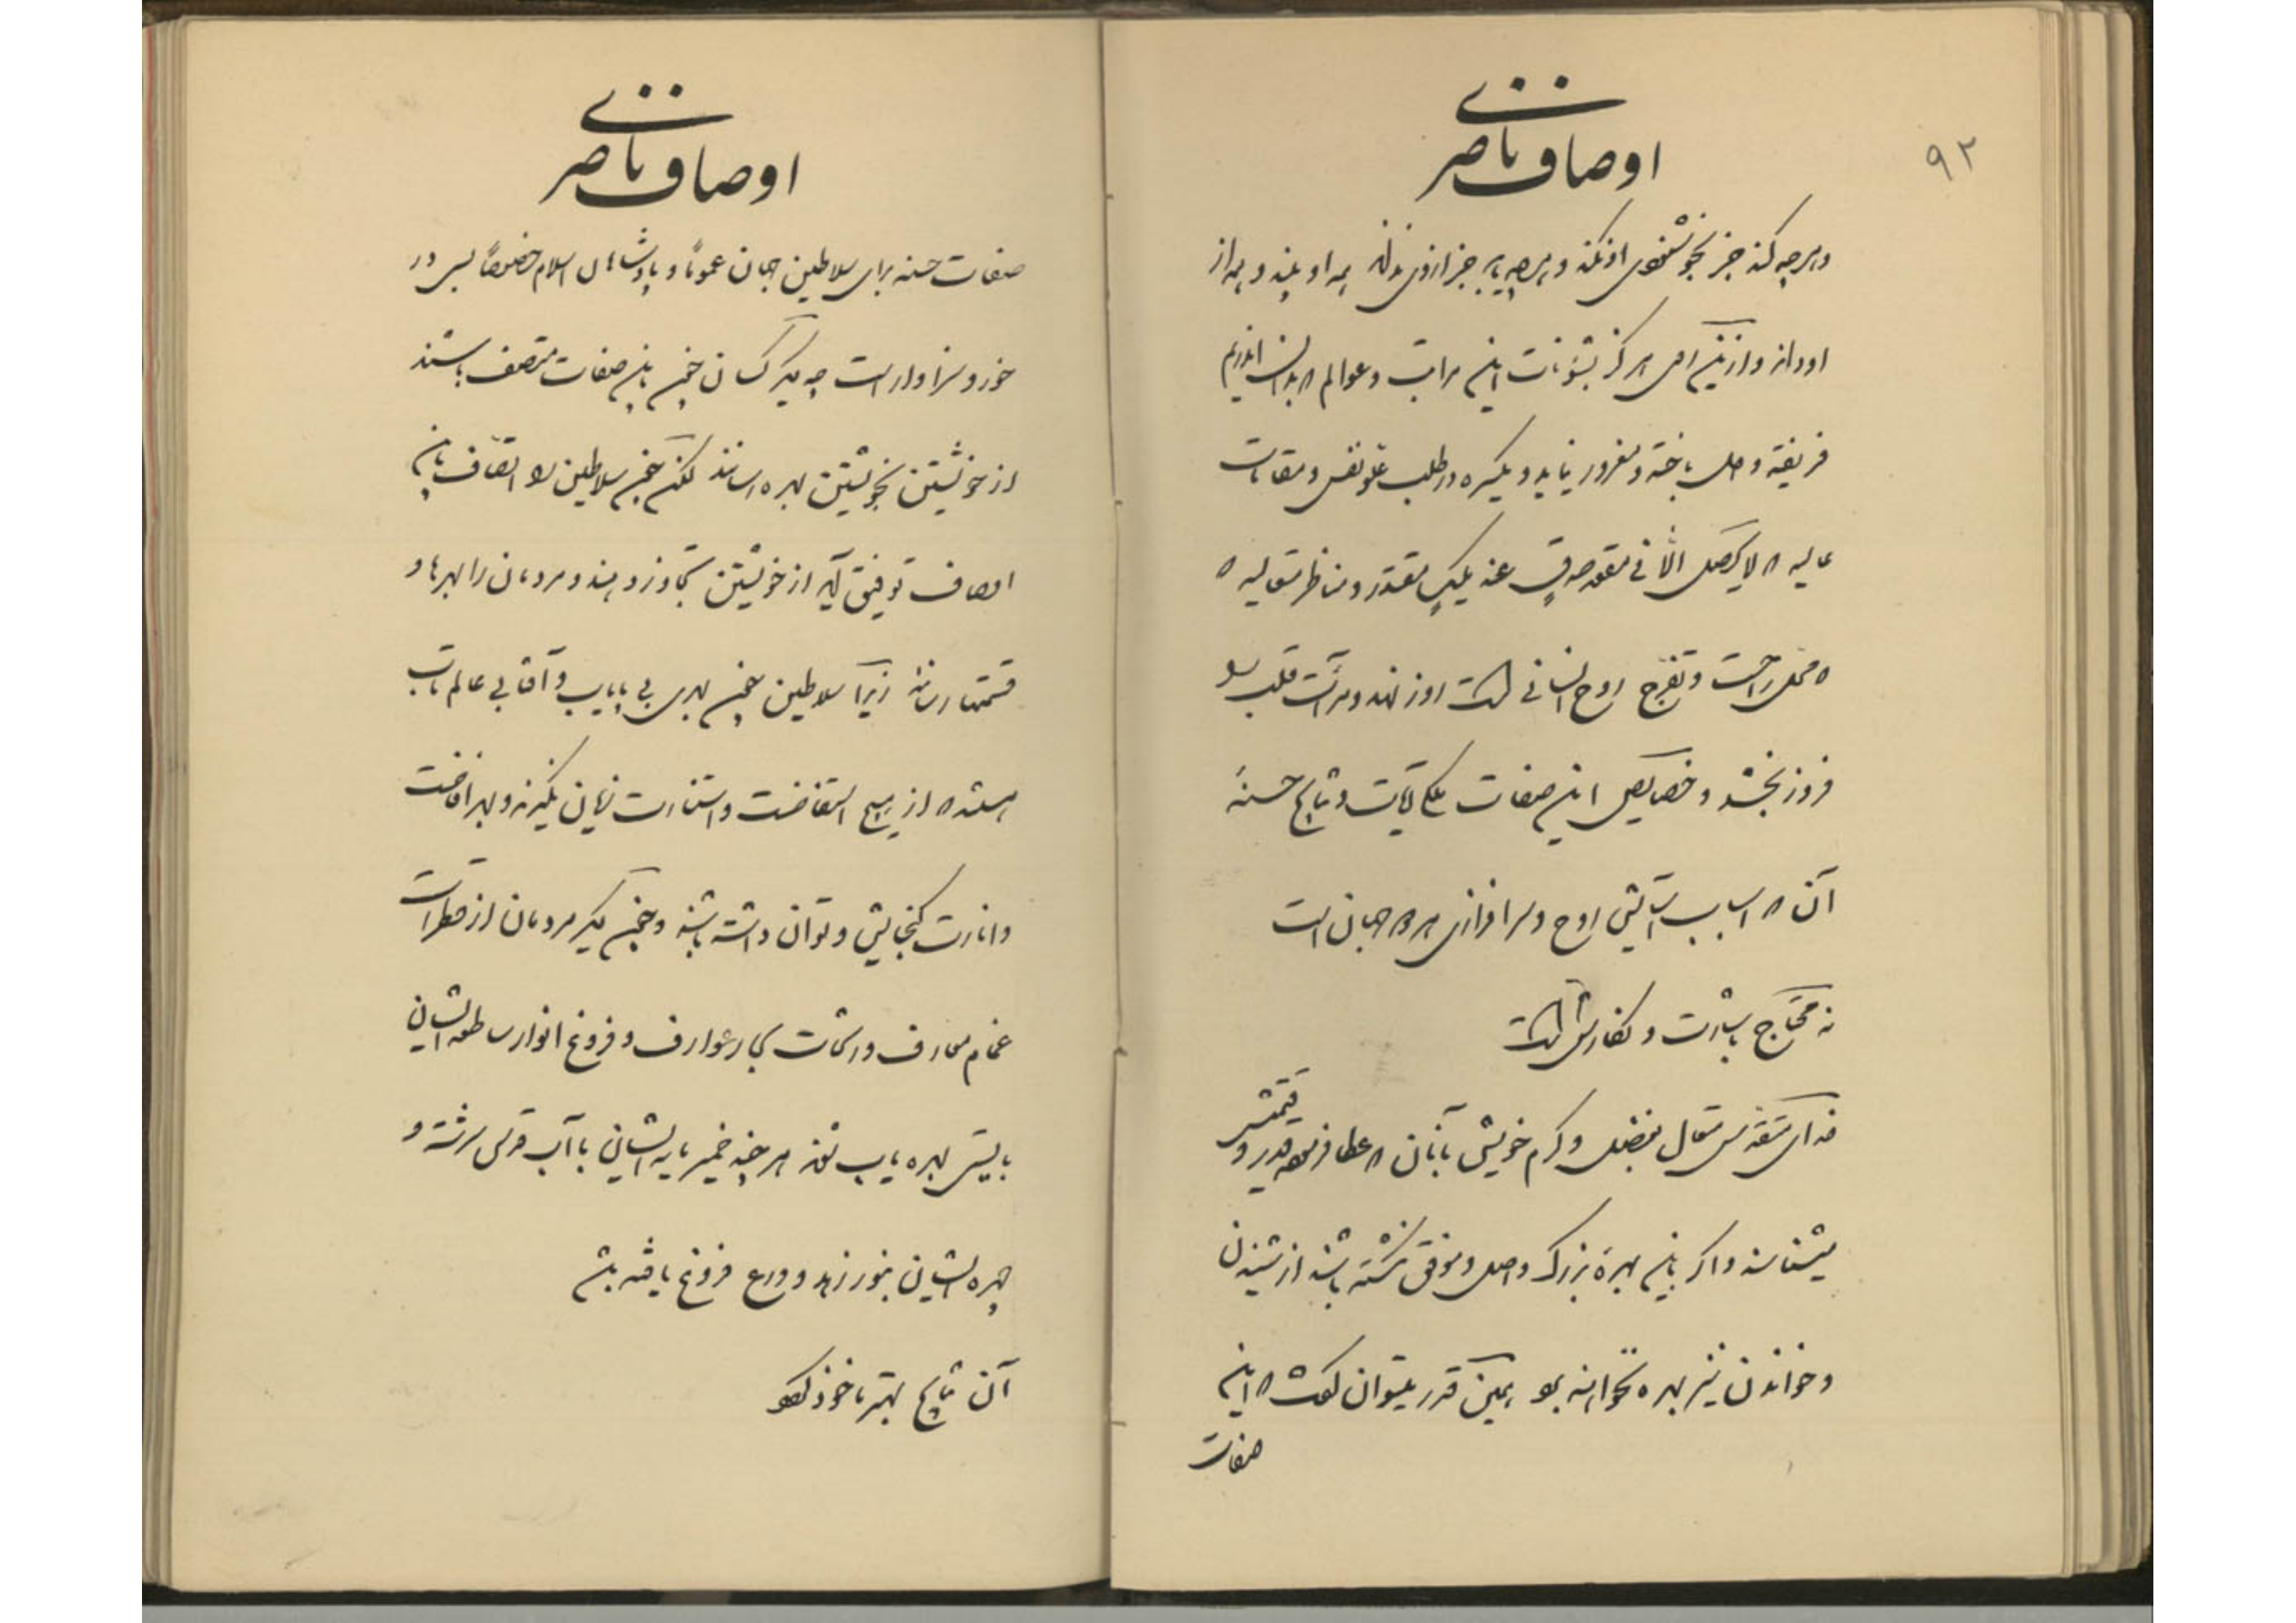 ۹۲
اوصاف ناصری
و هرچه کند جز بخوشنودی او نکند و هرچه یابد جز از وی نداند همه او بیند و همه از
او داند و ازین روی هرگز بشئونات این مراتب و عوالم که بدان اندریم
فریفته و دل باخته و مغرور نیاید و یکسره در طلب علو نفس و مقامات
عالیه که لایحصل الا فی مقعد صدق عند ملیک مقتدر و مناظر متعالیه که
محل راحت و تفرج روح انسانی است روز نهد و مرآت قلب را
فروز بخشد و خصایص این صفات ملکات آیات و نتایج حسنهٔ
آن که اسباب آسایش روح و سرافرازی هر دو جهان است
نه محتاج بشارت و نگارش است
خدای متقدس متعال بفضل و کرم خویش بآنان که عطا فرموده قدر و قیمتش
میشناسند و اگر باین بهرهٔ بزرگ واصل و موفق نگشته باشند از شنیدن
و خواندن نیز بهره نخواهند برد همین قدر میتوان گفت که این
صفات
اوصاف ناصری
صفات حسنه برای سلاطین جهان عموماً و پادشاهان اسلام خصوصاً بس در
خور و سزاوار است چه دیگر کسان چون باین صفات متصف باشند
از خویشتن بخویشتن بهره رسانند لکن چون سلاطین را اتصاف باین
اوصاف توفیق آید از خویشتن تجاوز دهند و مردمان را بهرها و
قسمتها رسانند زیرا سلاطین چون بحری بی پایاب و آفتابی عالم تاب
هستند که از هیچ استفاضت و استنارت زیان نگیرند و بهر افاضت
و انارت گنجایش و توان داشته باشند و چون دیگر مردمان از قطرات
غمام معارف و رشحات بحار عوارف و فروغ انوار ساطعه ایشان
بایستی بهره یاب شوند هرچند خمیر مایه ایشان با آب قدس سرشته و
چهره ایشان بنور زهد و ورع فروغ یافته باشد
آن نتایج بهتر ماخوذ گردد